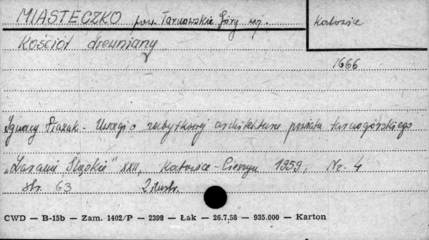 MIASTECZKO pow. Tarnowskie Góry woj.
Katowice
Kościół drewniany
1666
Ignacy Płazak - Uwagi o zabytkowej architekturze powiatu tarnogórskiego
"Zaranie Śląskie" XXII, Katowice-Cieszyn 1959, Nr. 4
str. 63 2 ilustr.
CWD — B-15b — Zam. 1402/P — 2398 — Łak — 26.7.58 — 935.000 — Karton